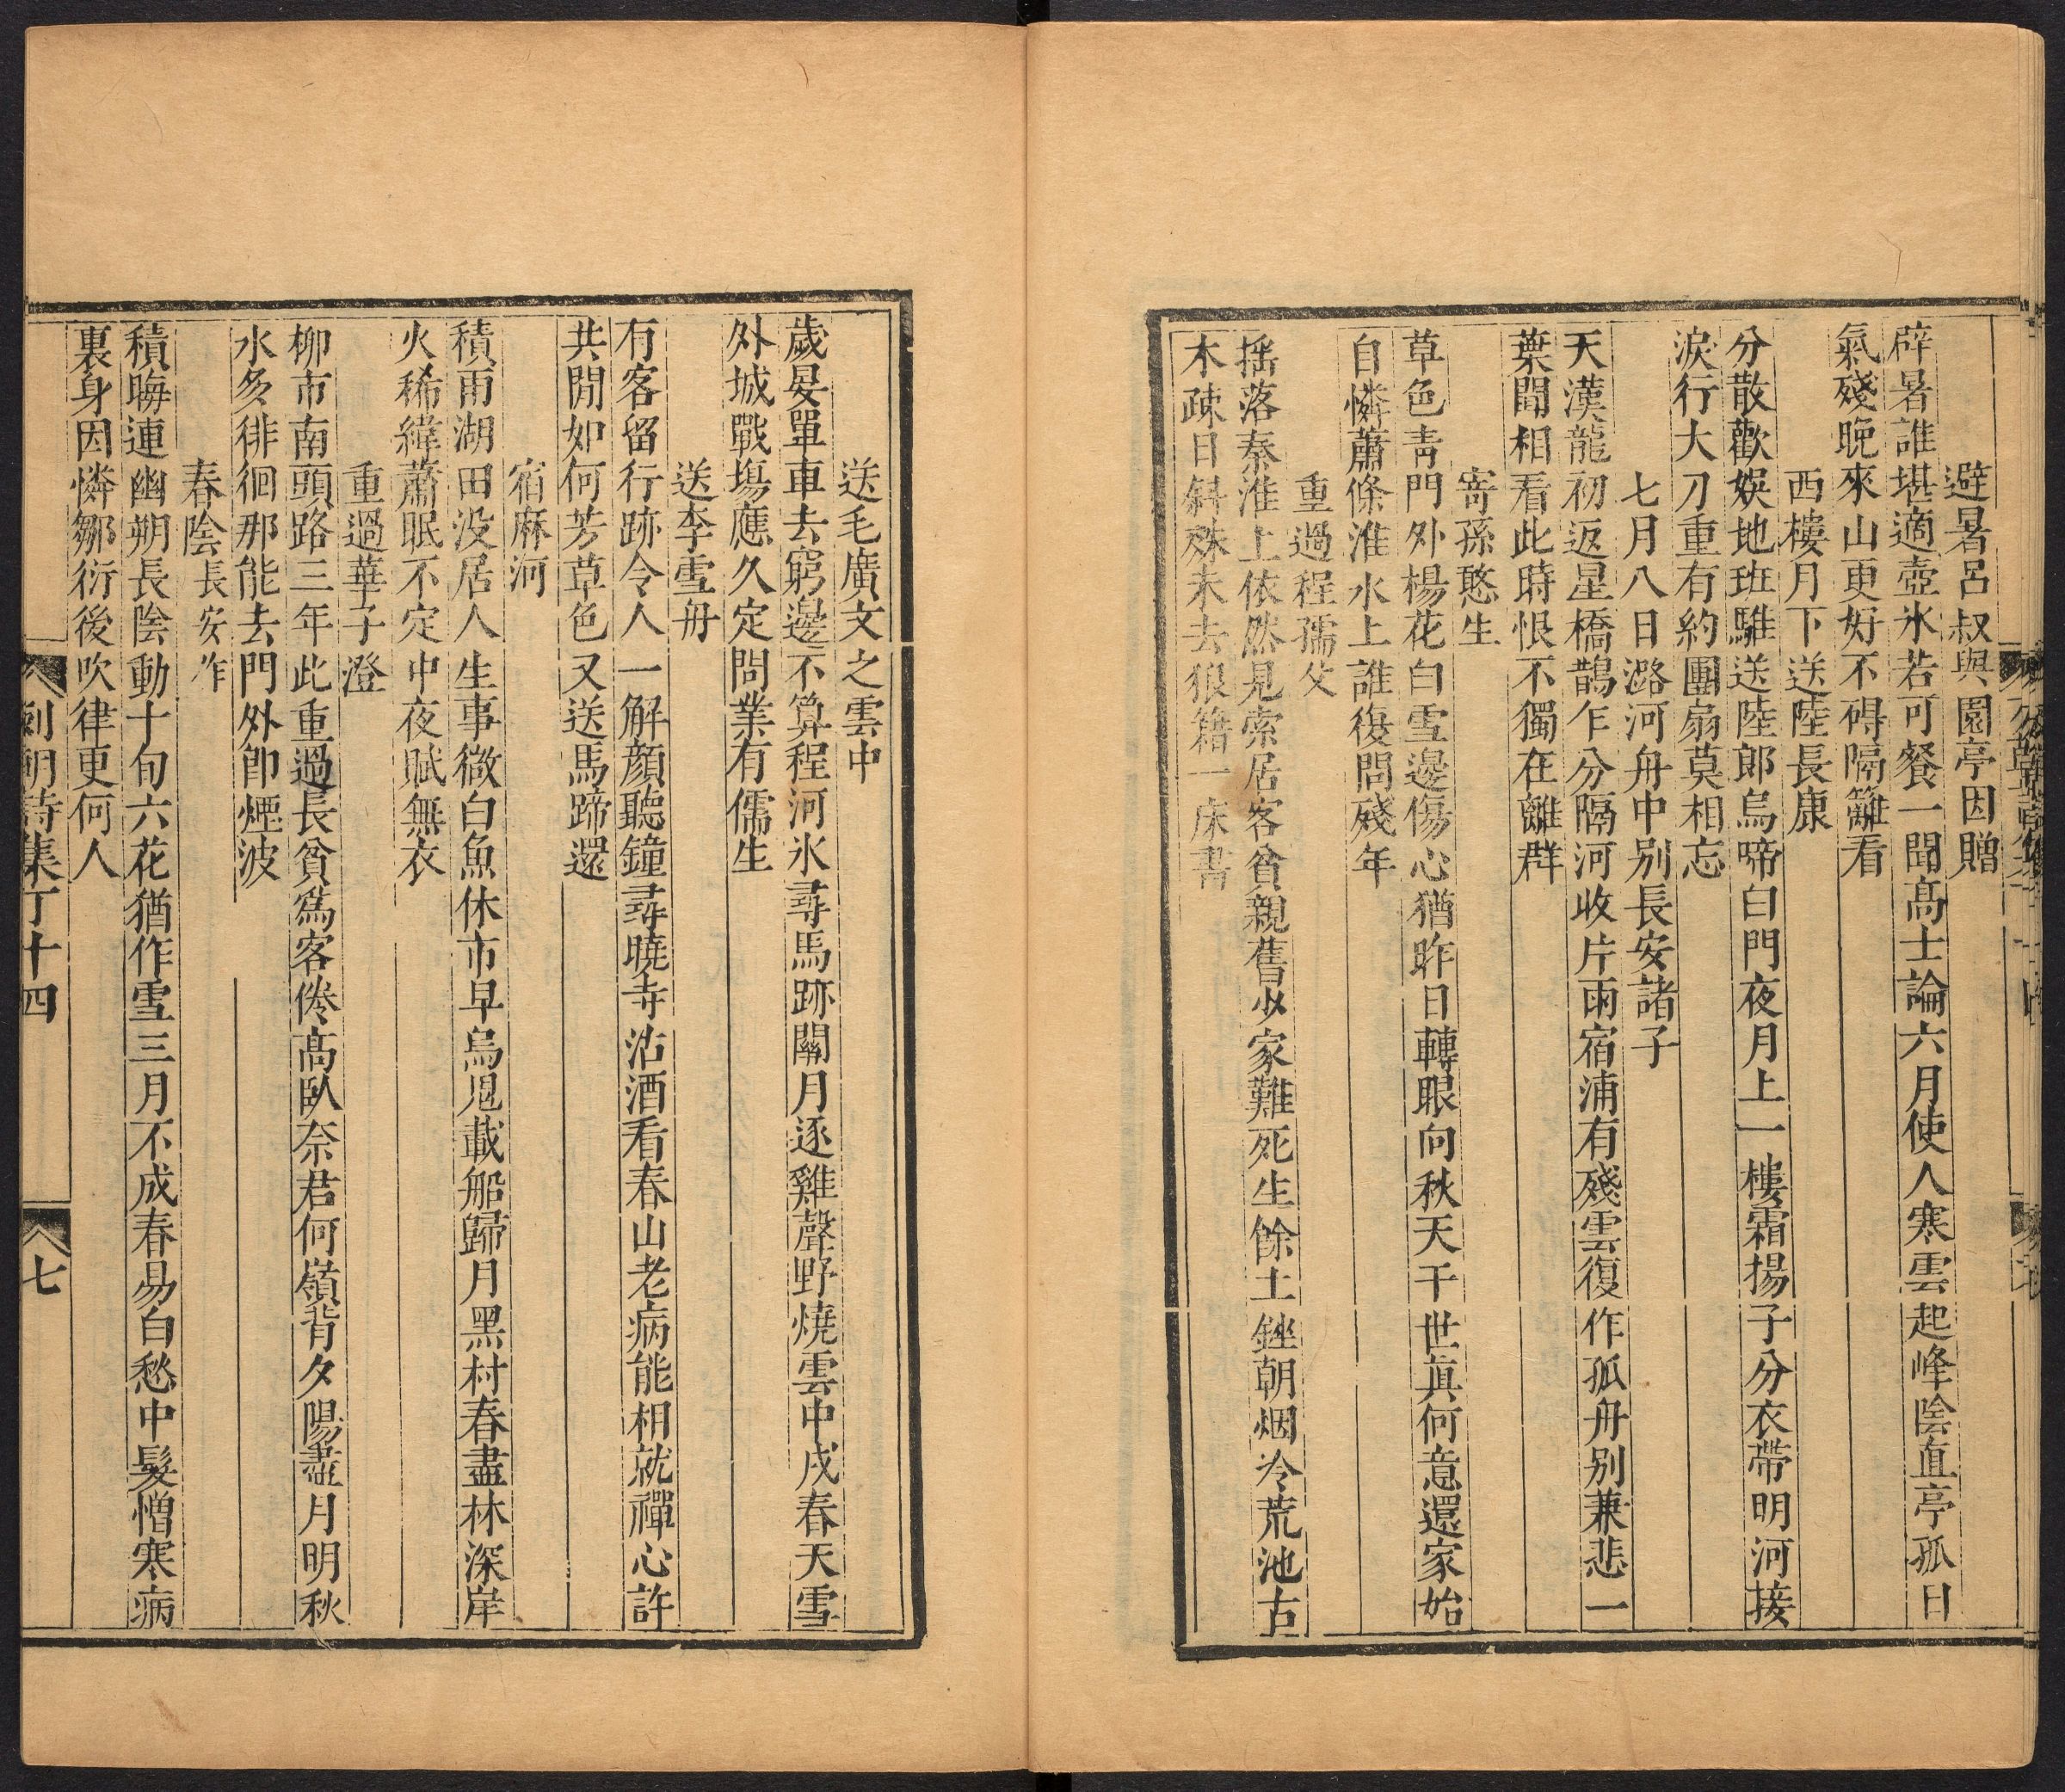 避暑呂叔與園亭因贈
辟暑誰堪適壺氷若可餐一聞髙士論六月使人寒雲起峰陰直亭孤日
氣殘晚來山更好不碍隔籬看
西樓月下送陸長康
分散歡娛地班騅送陸郎烏啼白門夜月上一樓霜揚子分衣帶明河接
淚行大刀重有約團扇莫相忘
七月八日潞河舟中别長安諸子
天漢龍初返星橋鵲乍分隔河收片雨宿浦有殘雲復作孤舟别兼悲一
葉聞相看此時恨不獨在離群
寄孫憨生
草色青門外楊花白雪邊傷心猶昨日轉眼向秋天干世眞何意還家始
自憐蕭條淮水上誰復問殘年
重過程孺文
揺落秦淮上依然見索居客貧親舊少家難死生餘土銼朝烟冷荒池古
木疎日斜殊未去狼籍一床書
送毛廣文之雲中
歲晏單車去窮邊不算程河氷尋馬跡關月逐雞聲野燒雲中戍春天雪
外城戰塲應久定問業有儒生
送李雪舟
有客留行跡令人一解顔聽鐘尋曉寺沽酒看春山老病能相就禪心許
共閒如何芳草色又送馬蹄還
宿麻河
積雨湖田没居人生事微白魚休市早烏鬼載船歸月黑村舂盡林深岸
火稀緯蕭眠不定中夜賦無衣
重過華子澄
柳市南頭路三年此重過長貧爲客倦髙臥奈君何嶺背夕陽盡月明秋
水多徘徊那能去門外卽煙波
春陰長安作
積晦連幽朔長陰動十旬六花猶作雪三月不成春易白愁中髮憎寒病
裏身因憐鄒衍後吹律更何人
列朝詩集丁十四
七